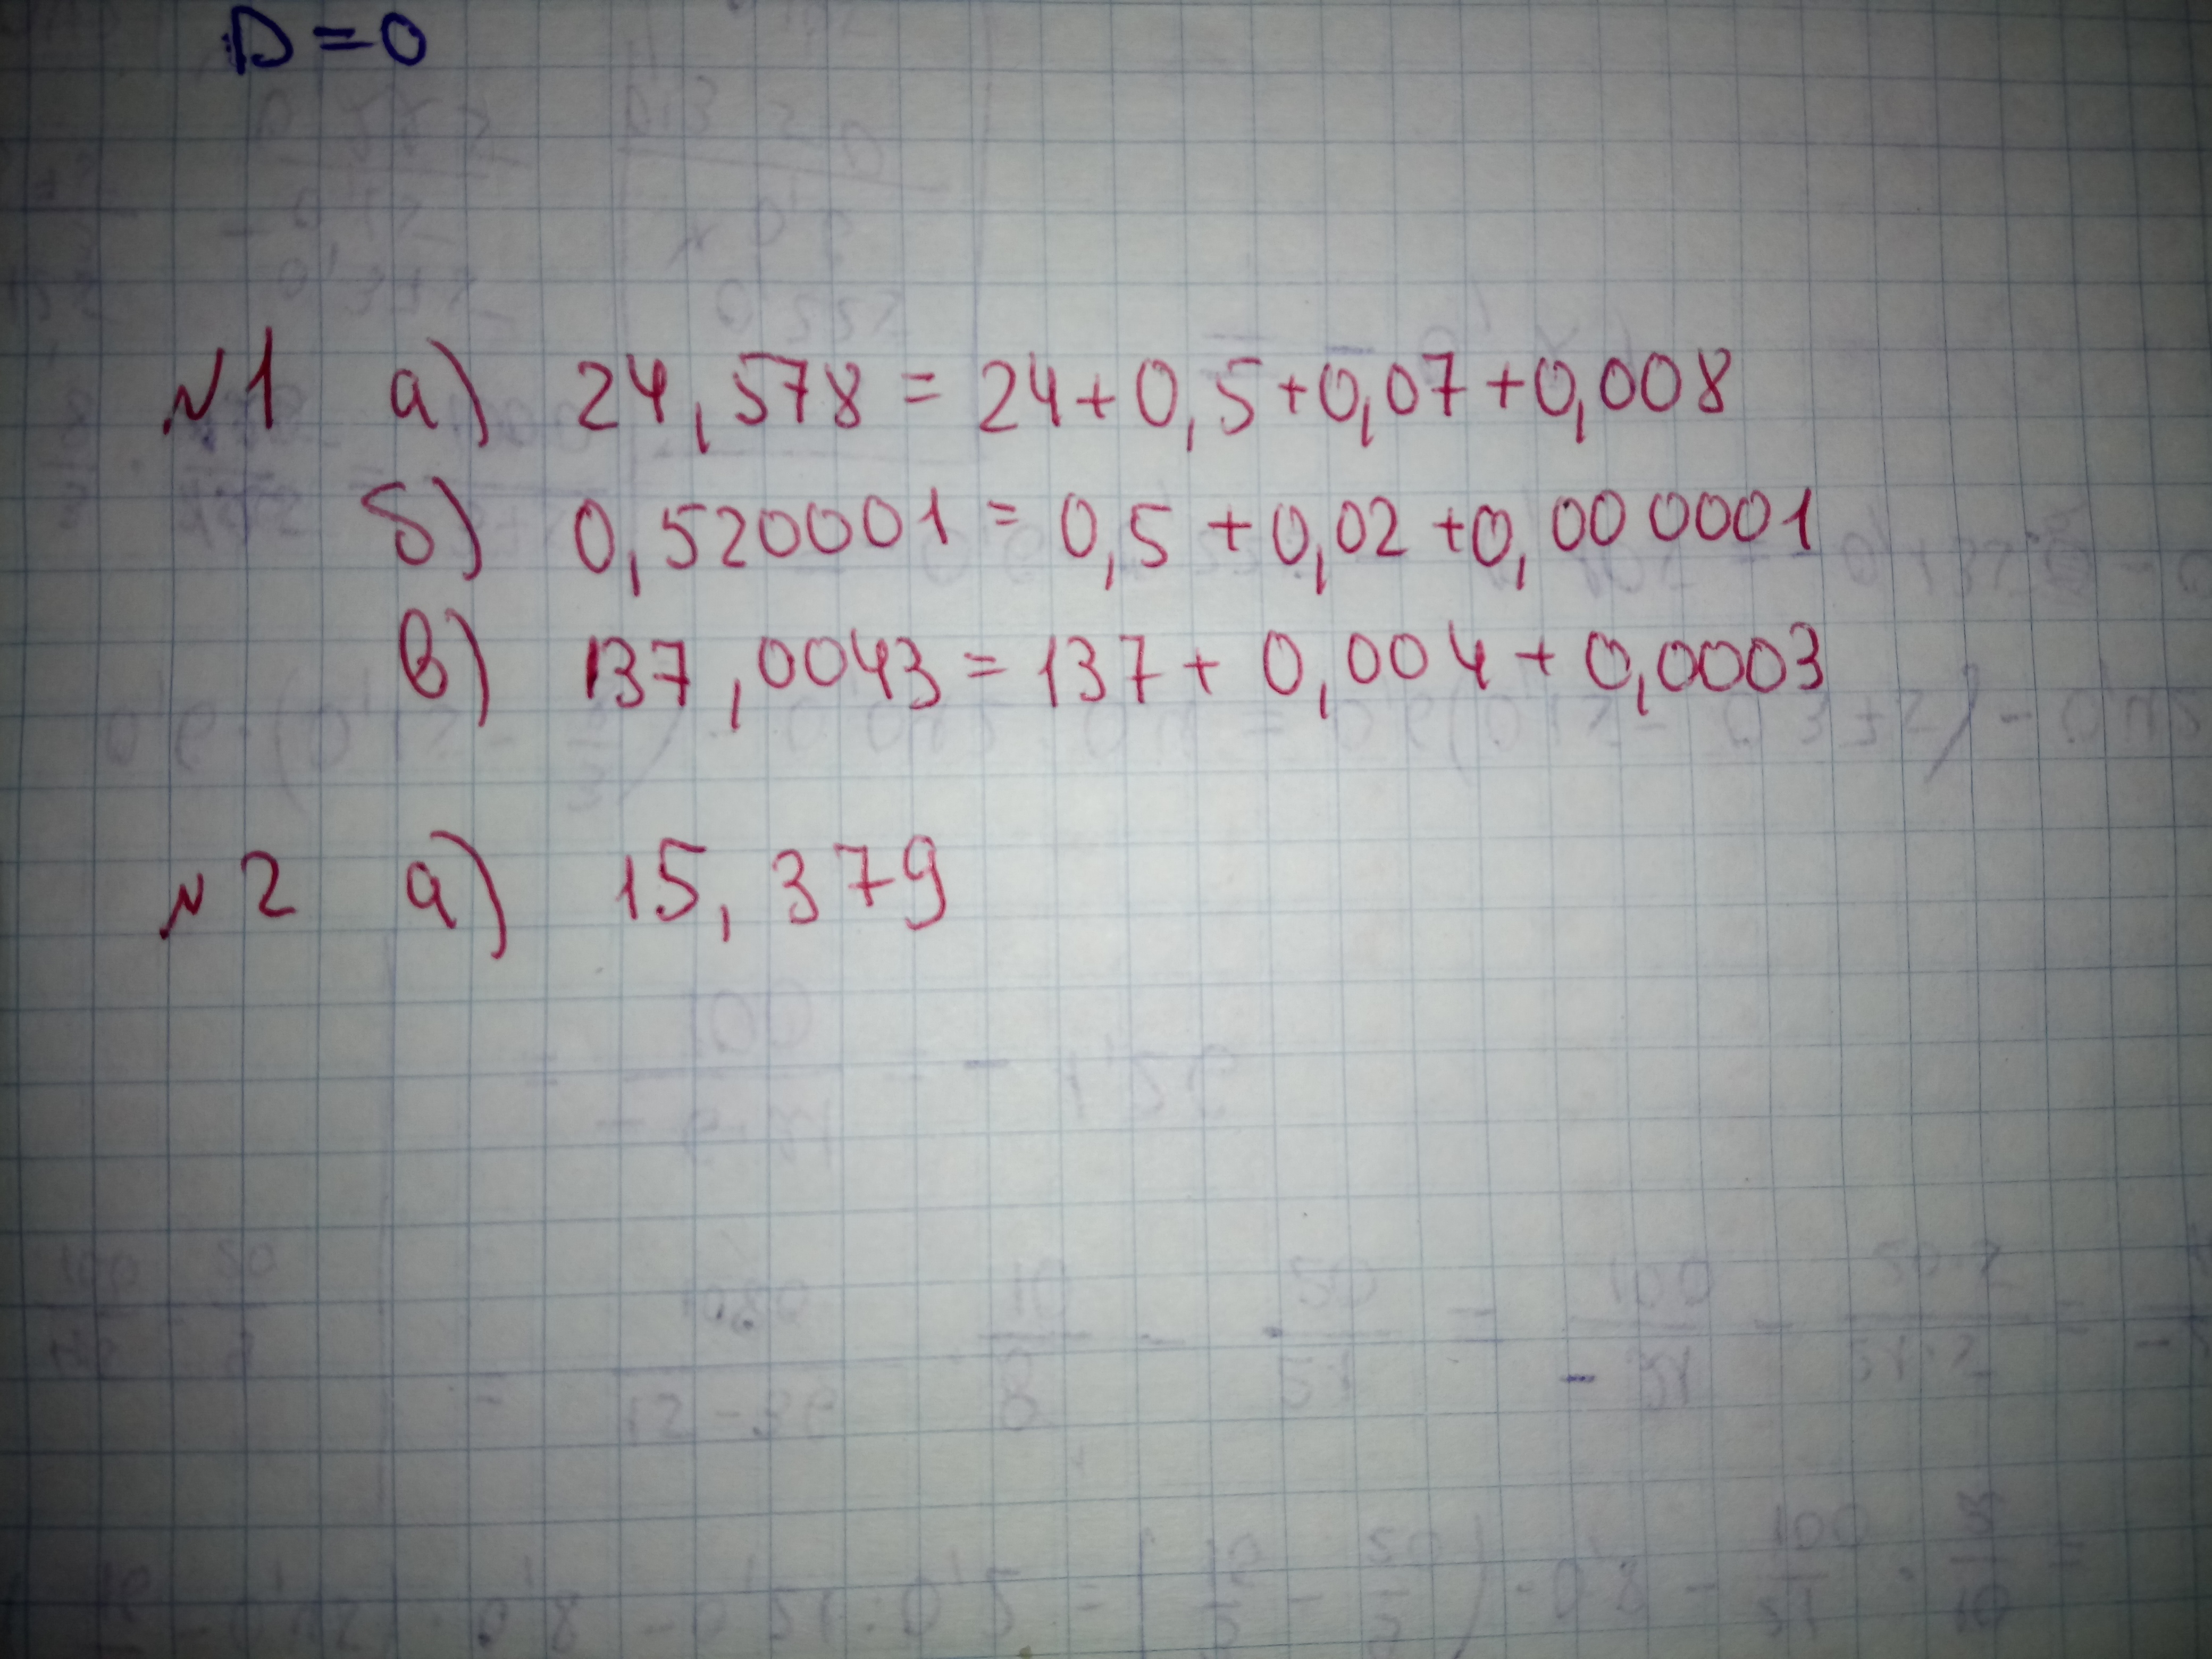 D = 0
№1 а) 24,578 = 24 + 0,5 + 0,07 + 0,008
б) 0,520001 = 0,5 + 0,02 + 0,000001
в) 137,0043 = 137 + 0,004 + 0,0003
№2 а) 15,379